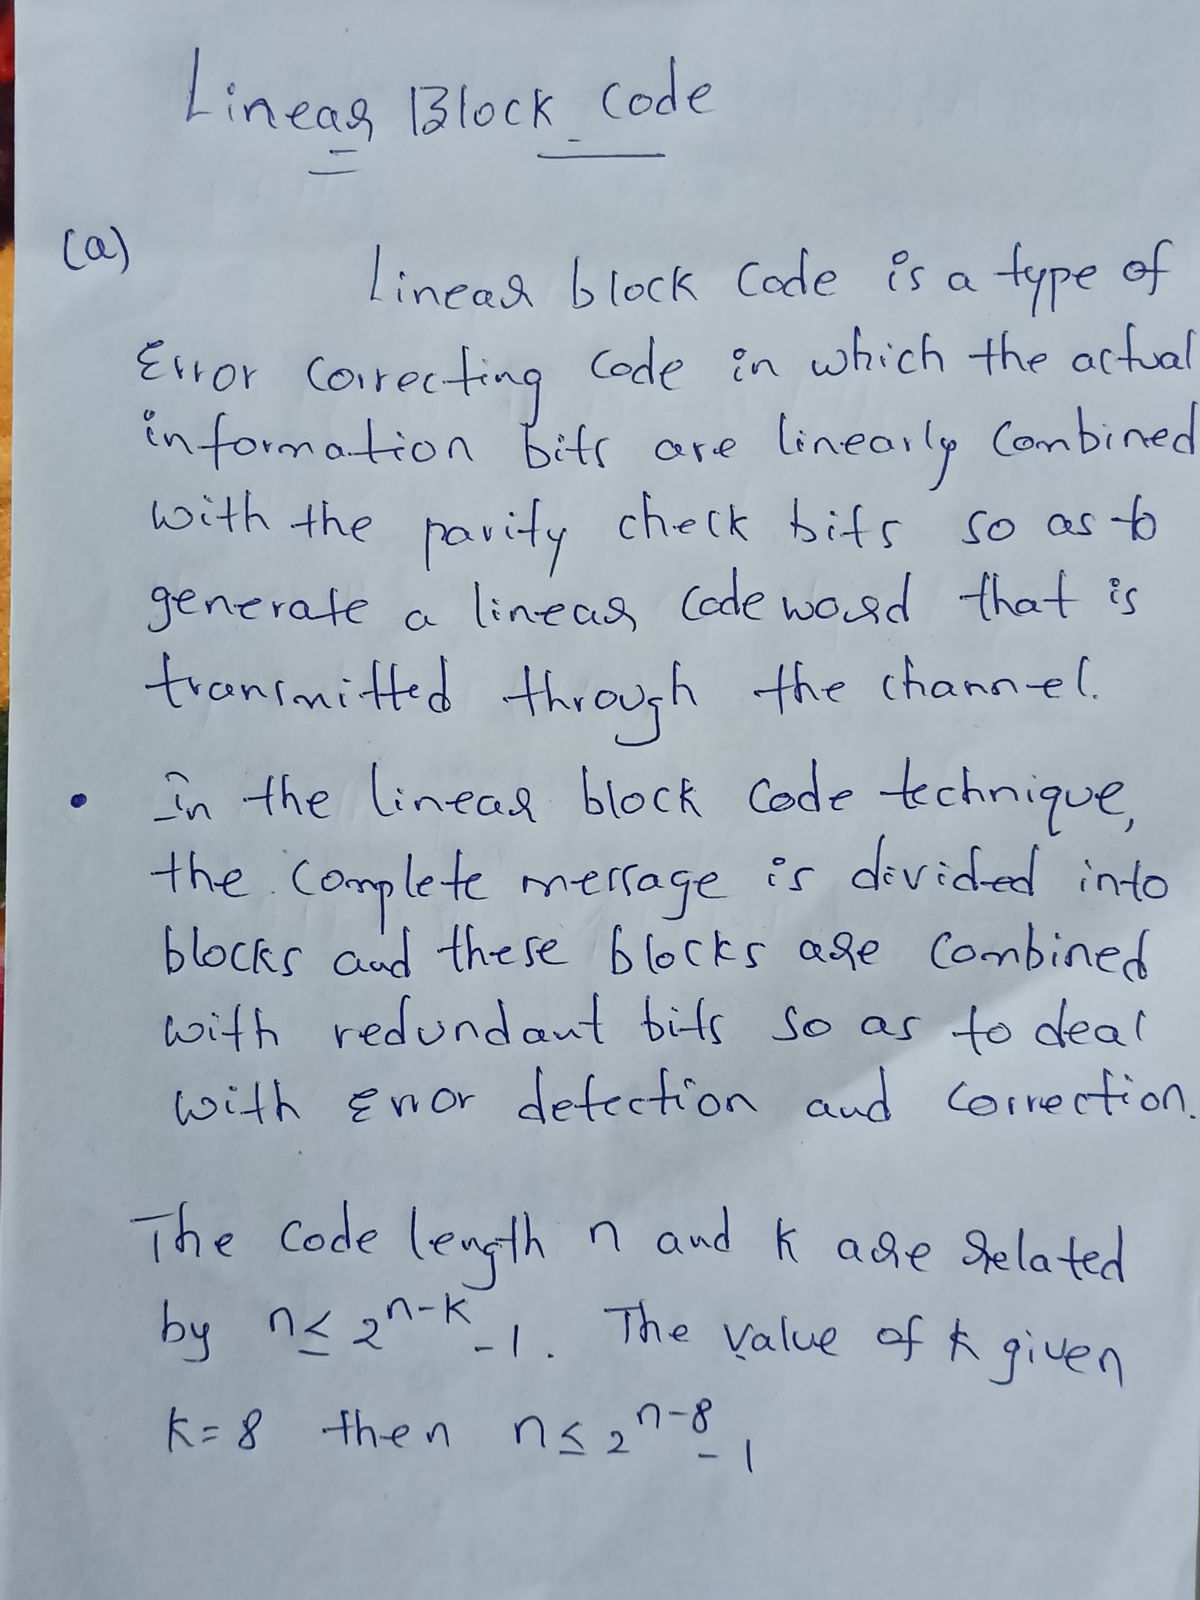 Linear Block Code
(a)
Linear block Code is a type of
Error Correcting Code in which the actual
information bits are linearly Combined
with the parity check bits so as to
generate a linear Codeword that is
transmitted through the channel.
• In the linear block Code technique,
the Complete message is divided into
blocks and these blocks are Combined
with redundant bits so as to deal
with Error detection and Correction.
The Code length n and k are related
by n ≤ 2^{n-k} - 1. The value of k given
k = 8 then n ≤ 2^{n-8} - 1